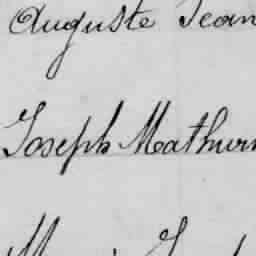 Auguste Jean
Joseph Mathurin